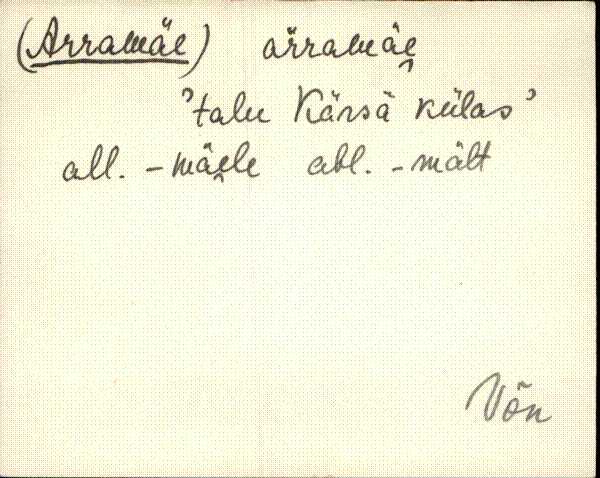 (Arramäe) äŕramäe̯
'talu Kärsä külas'
all. -mäe̯le abl. -mält
Võn